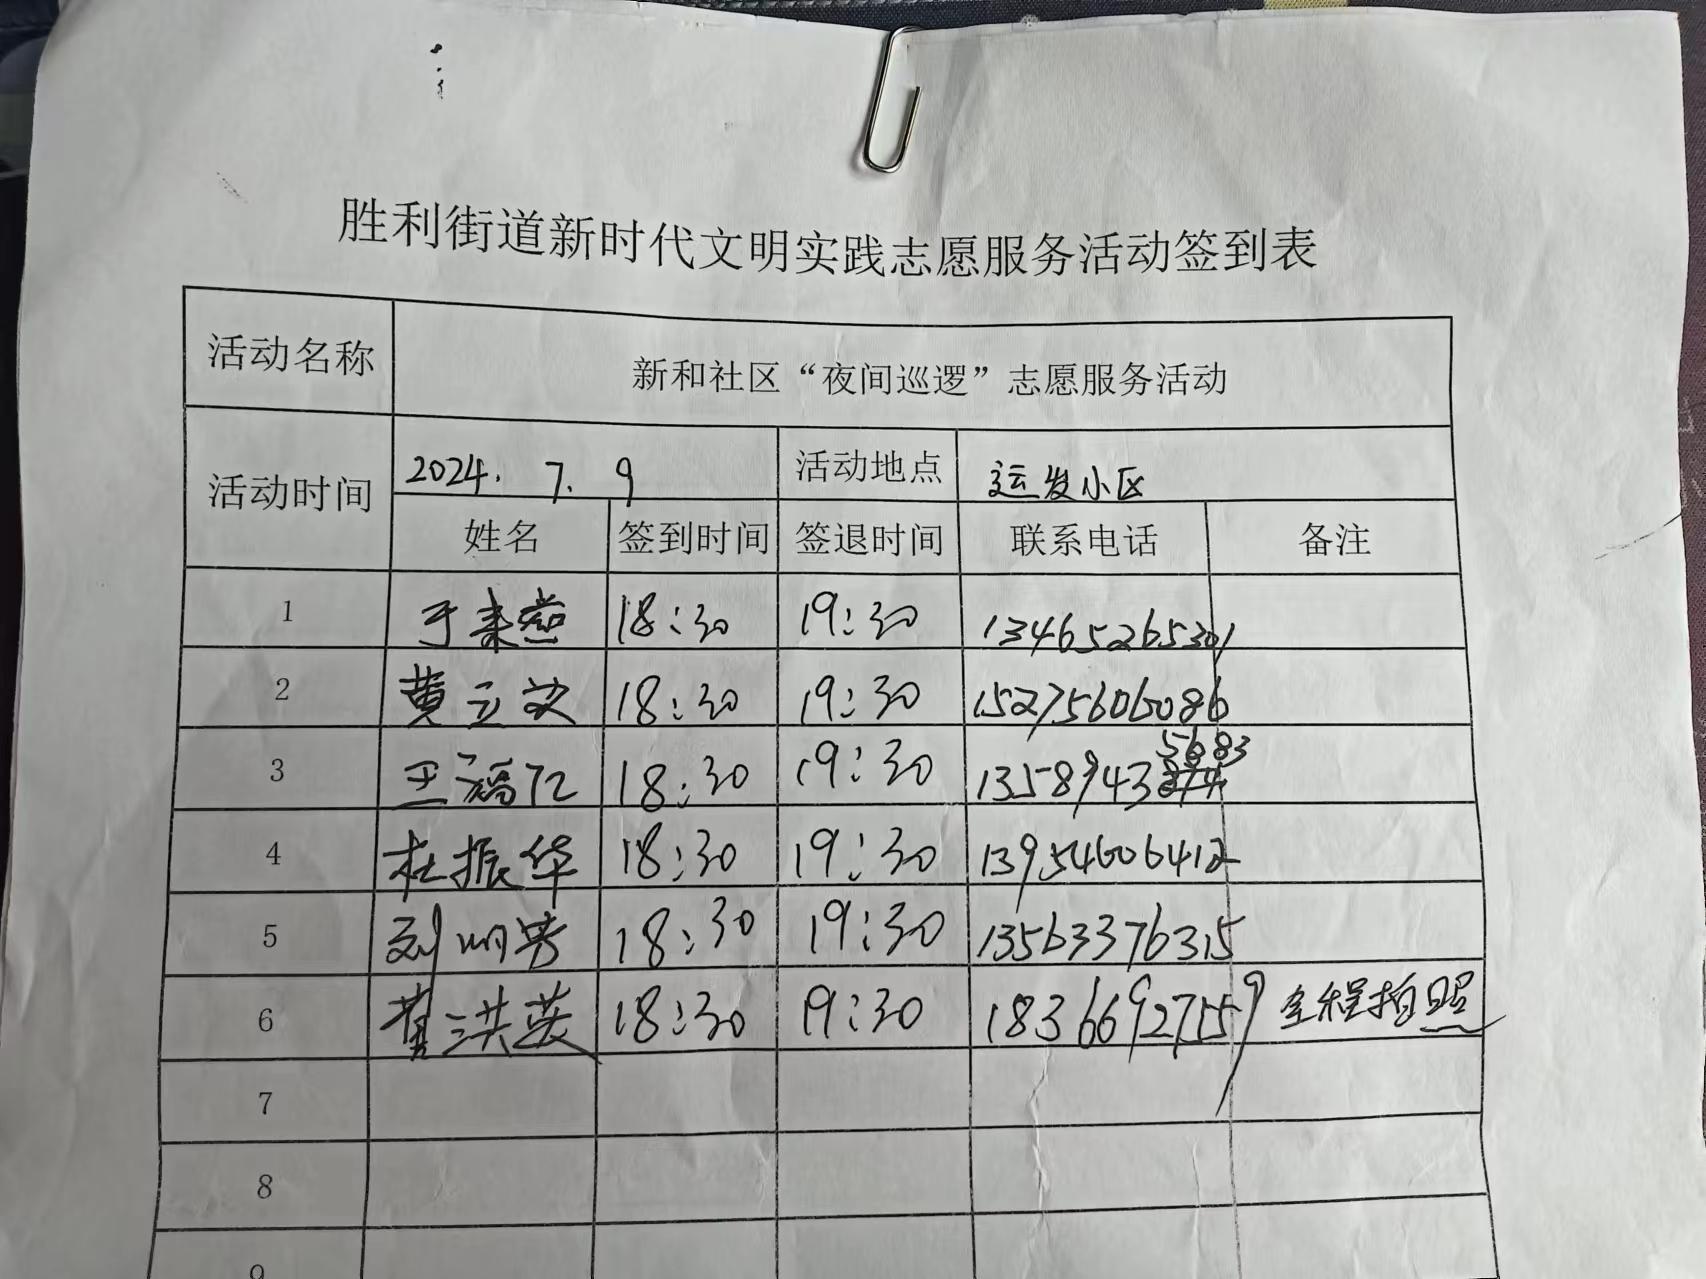 胜利街道新时代文明实践志愿服务活动签到表
活动名称 新和社区“夜间巡逻”志愿服务活动
活动时间 2024. 7. 9 活动地点 运发小区
姓名 签到时间 签退时间 联系电话 备注
1 于来燕 18:30 19:30 13465265301
2 黄立文 18:30 19:30 15275606086
3 王福仁 18:30 19:30 1358943 5683
4 杜振华 18:30 19:30 13954606412
5 刘明芳 18:30 19:30 13563376315
6 洪英 18:30 19:30 18366927559 全程拍照
7
8
9